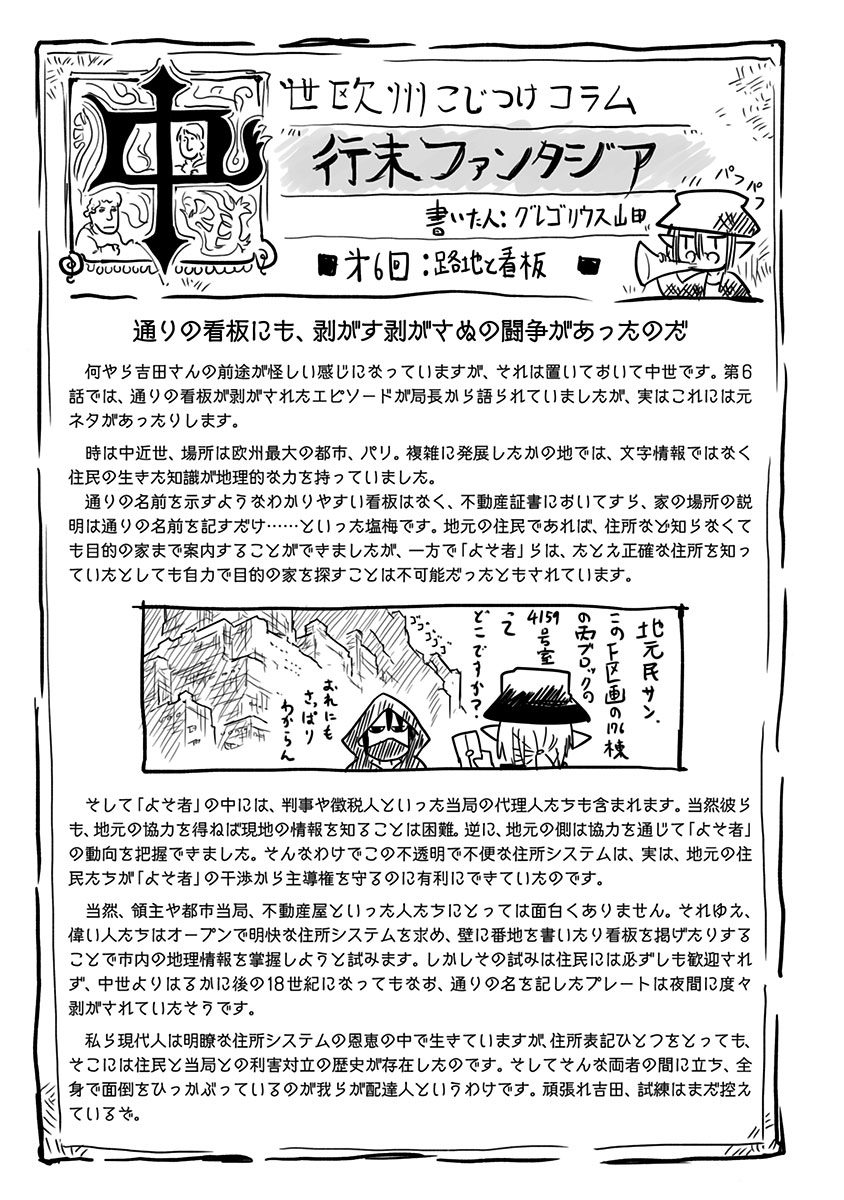 中世欧州こじつけコラム
行末ファンタジア
書いた人：グレゴリウス山田
パフパフ
■第6回：路地と看板 ■
通りの看板にも、剥がす剥がさぬの闘争があったのだ
何やら吉田さんの前途が怪しい感じになっていますが、それは置いておいて中世です。第6
話では、通りの看板が剥がされたエピソードが局長から語られていましたが、実はこれには元
ネタがあったりします。
時は中近世、場所は欧州最大の都市、パリ。複雑に発展したかの地では、文字情報ではなく
住民の生きた知識が地理的な力を持っていました。
通りの名前を示すようなわかりやすい看板はなく、不動産証書においてすら、家の場所の説
明は通りの名前を記すだけ……といった塩梅です。地元の住民であれば、住所など知らなくて
も目的の家まで案内することができましたが、一方で「よそ者」らは、たとえ正確な住所を知っ
ていたとしても自力で目的の家を探すことは不可能だったともされています。
地元民サン、
このF区画の176棟
の西ブロックの
4159号室
って
どこですか？
ゴゴゴゴゴ
おれにも
さっぱり
わからん
そして「よそ者」の中には、判事や徴税人といった当局の代理人たちも含まれます。当然彼ら
も、地元の協力を得ねば現地の情報を知ることは困難。逆に、地元の側は協力を通じて「よそ者」
の動向を把握できました。そんなわけでこの不透明で不便な住所システムは、実は、地元の住
民たちが「よそ者」の干渉から主導権を守るのに有利にできていたのです。
当然、領主や都市当局、不動産屋といった人たちにとっては面白くありません。それゆえ、
偉い人たちはオープンで明快な住所システムを求め、壁に番地を書いたり看板を掲げたりする
ことで市内の地理情報を掌握しようと試みます。しかしその試みは住民には必ずしも歓迎され
ず、中世よりはるかに後の18世紀になってもなお、通りの名を記したプレートは夜間に度々
剥がされていたそうです。
私ら現代人は明瞭な住所システムの恩恵の中で生きていますが、住所表記ひとつをとっても、
そこには住民と当局との利害対立の歴史が存在したのです。そしてそんな両者の間に立ち、全
身で面倒をひっかぶっているのが我らが配達人というわけです。頑張れ吉田、試練はまだ控え
ているぞ。